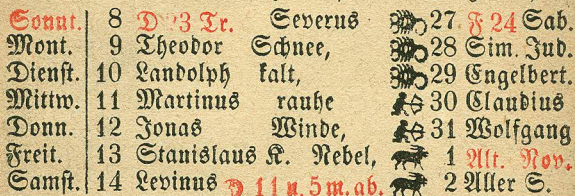 Sonnt. 8 D 23 Tr. Severus 27 F 24 Sab.
Mont. 9 Theodor Schnee, 28 Sim. Jud.
Dienst. 10 Landolph kalt, 29 Engelbert.
Mittw. 11 Martinus rauhe 30 Claudius
Donn. 12 Jonas Winde, 31 Wolfgang
Freit. 13 Stanislaus K. Nebel, 1 Alt. Nov.
Samst. 14 Levinus 11 u. 5 m. ab. 2 Aller S.